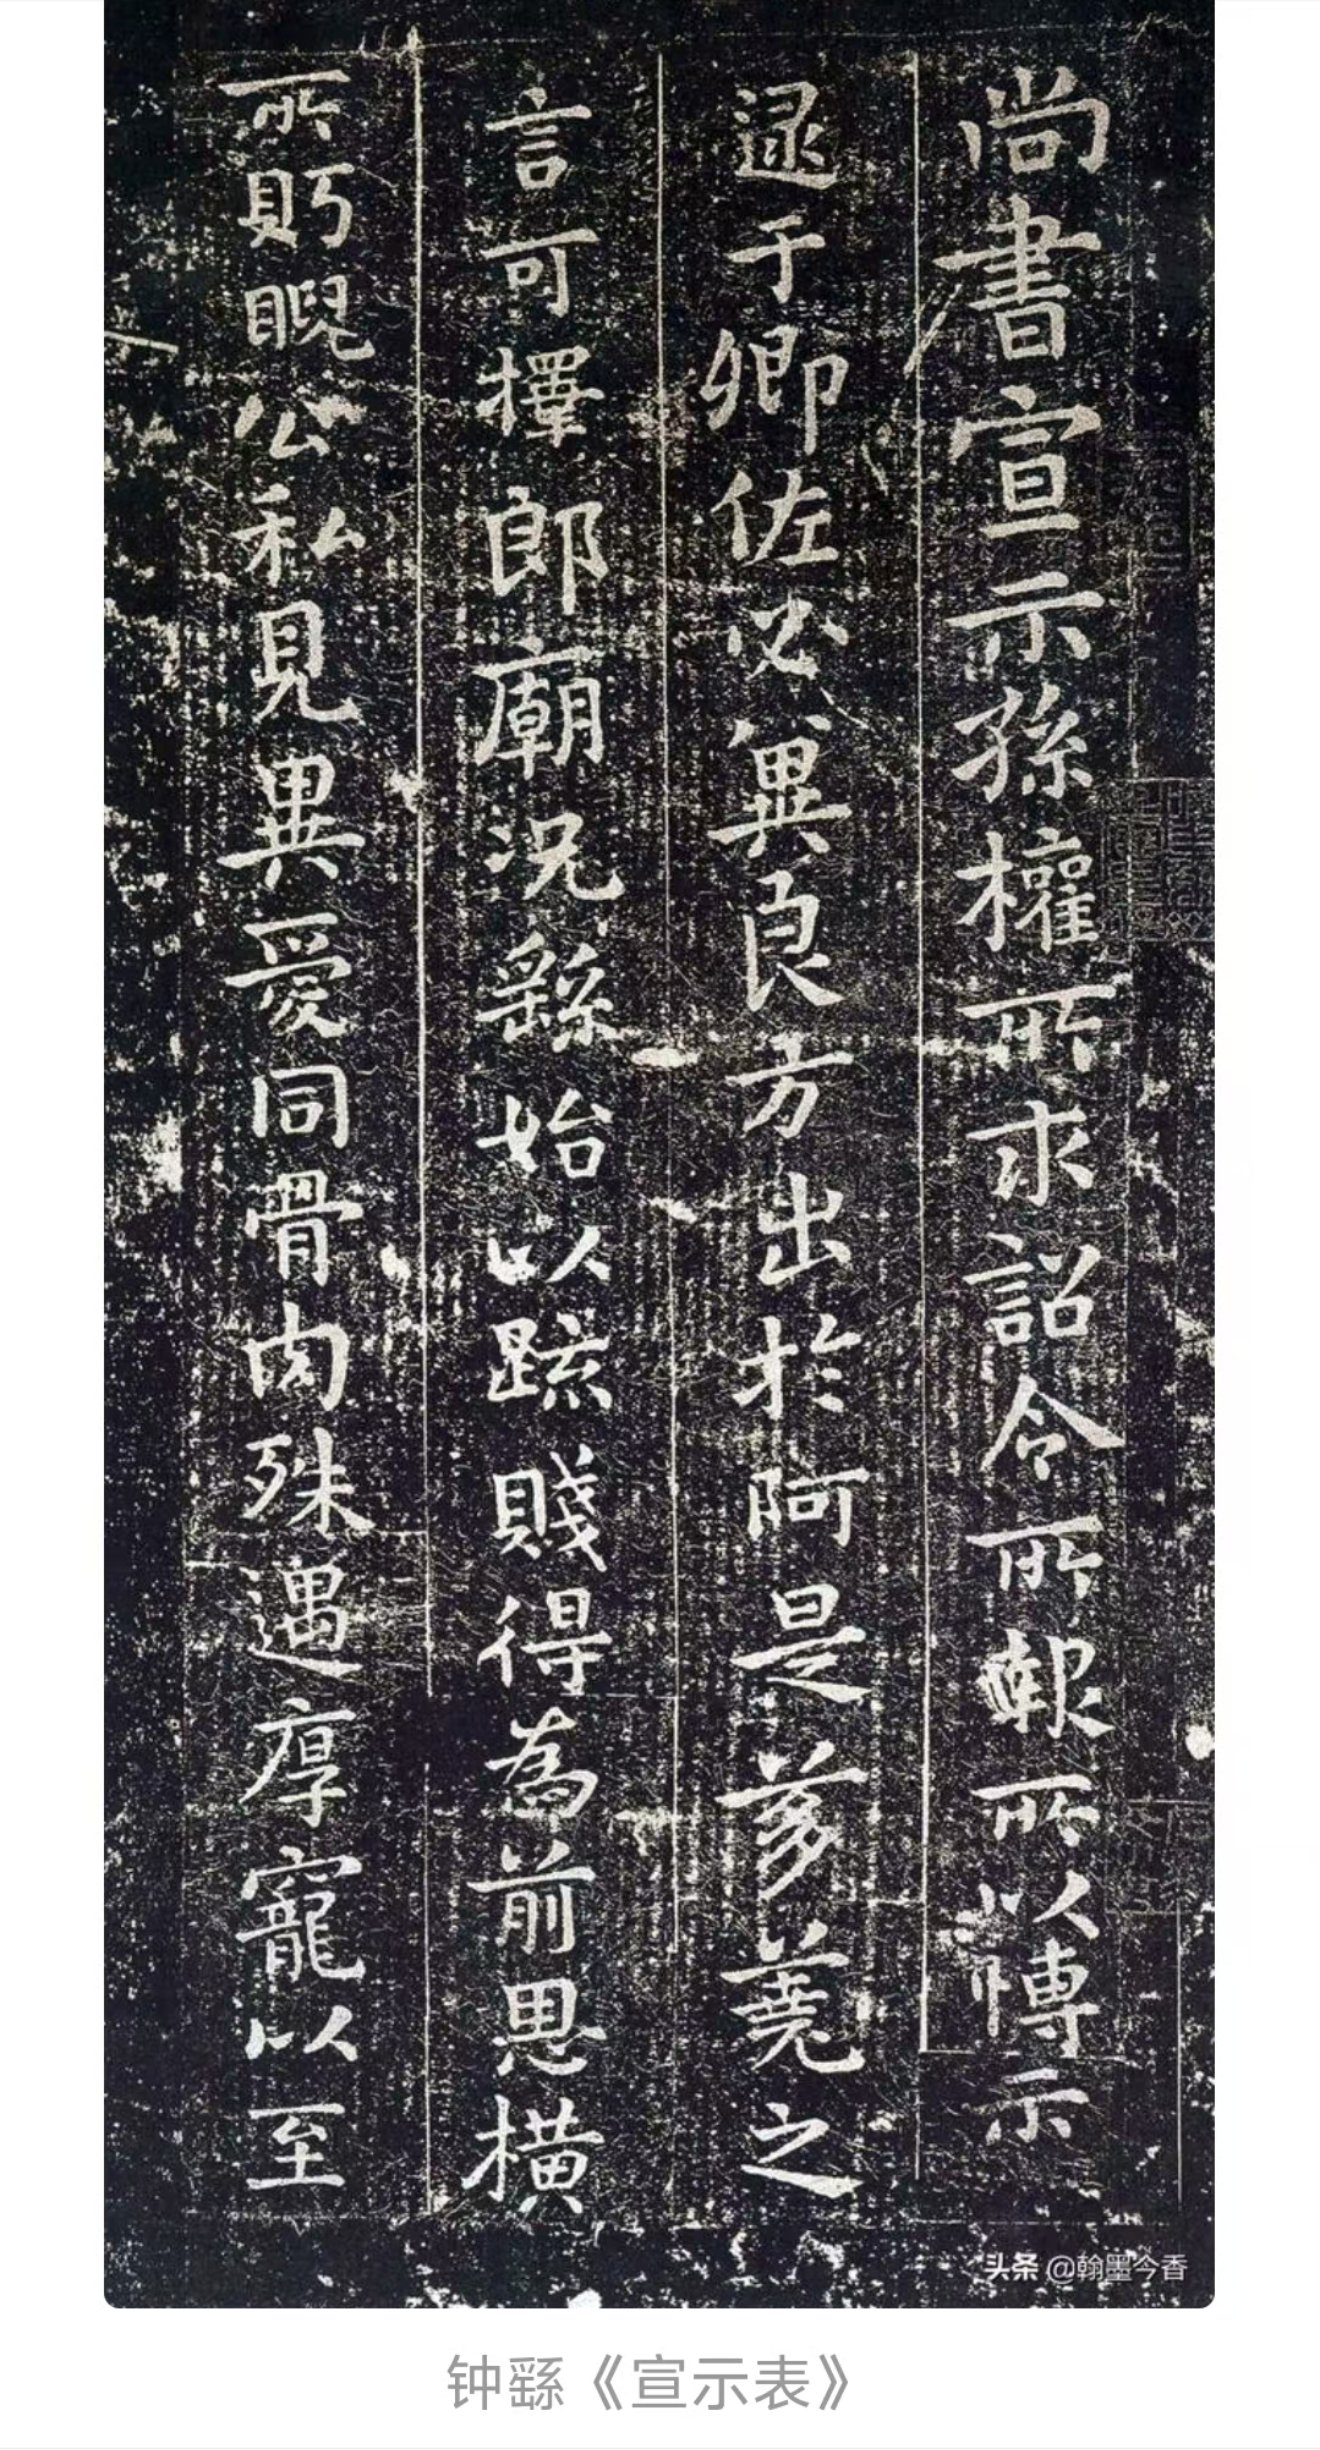 尚書宣示孫權所求詔令所報所以博示
逮于卿佐必異良方出於阿是芻蕘之
言可擇郎廟況繇始以疏賤得為前恩橫
所盼睨公私見異愛同骨肉殊遇厚寵以至
头条 @翰墨今香
钟繇《宣示表》